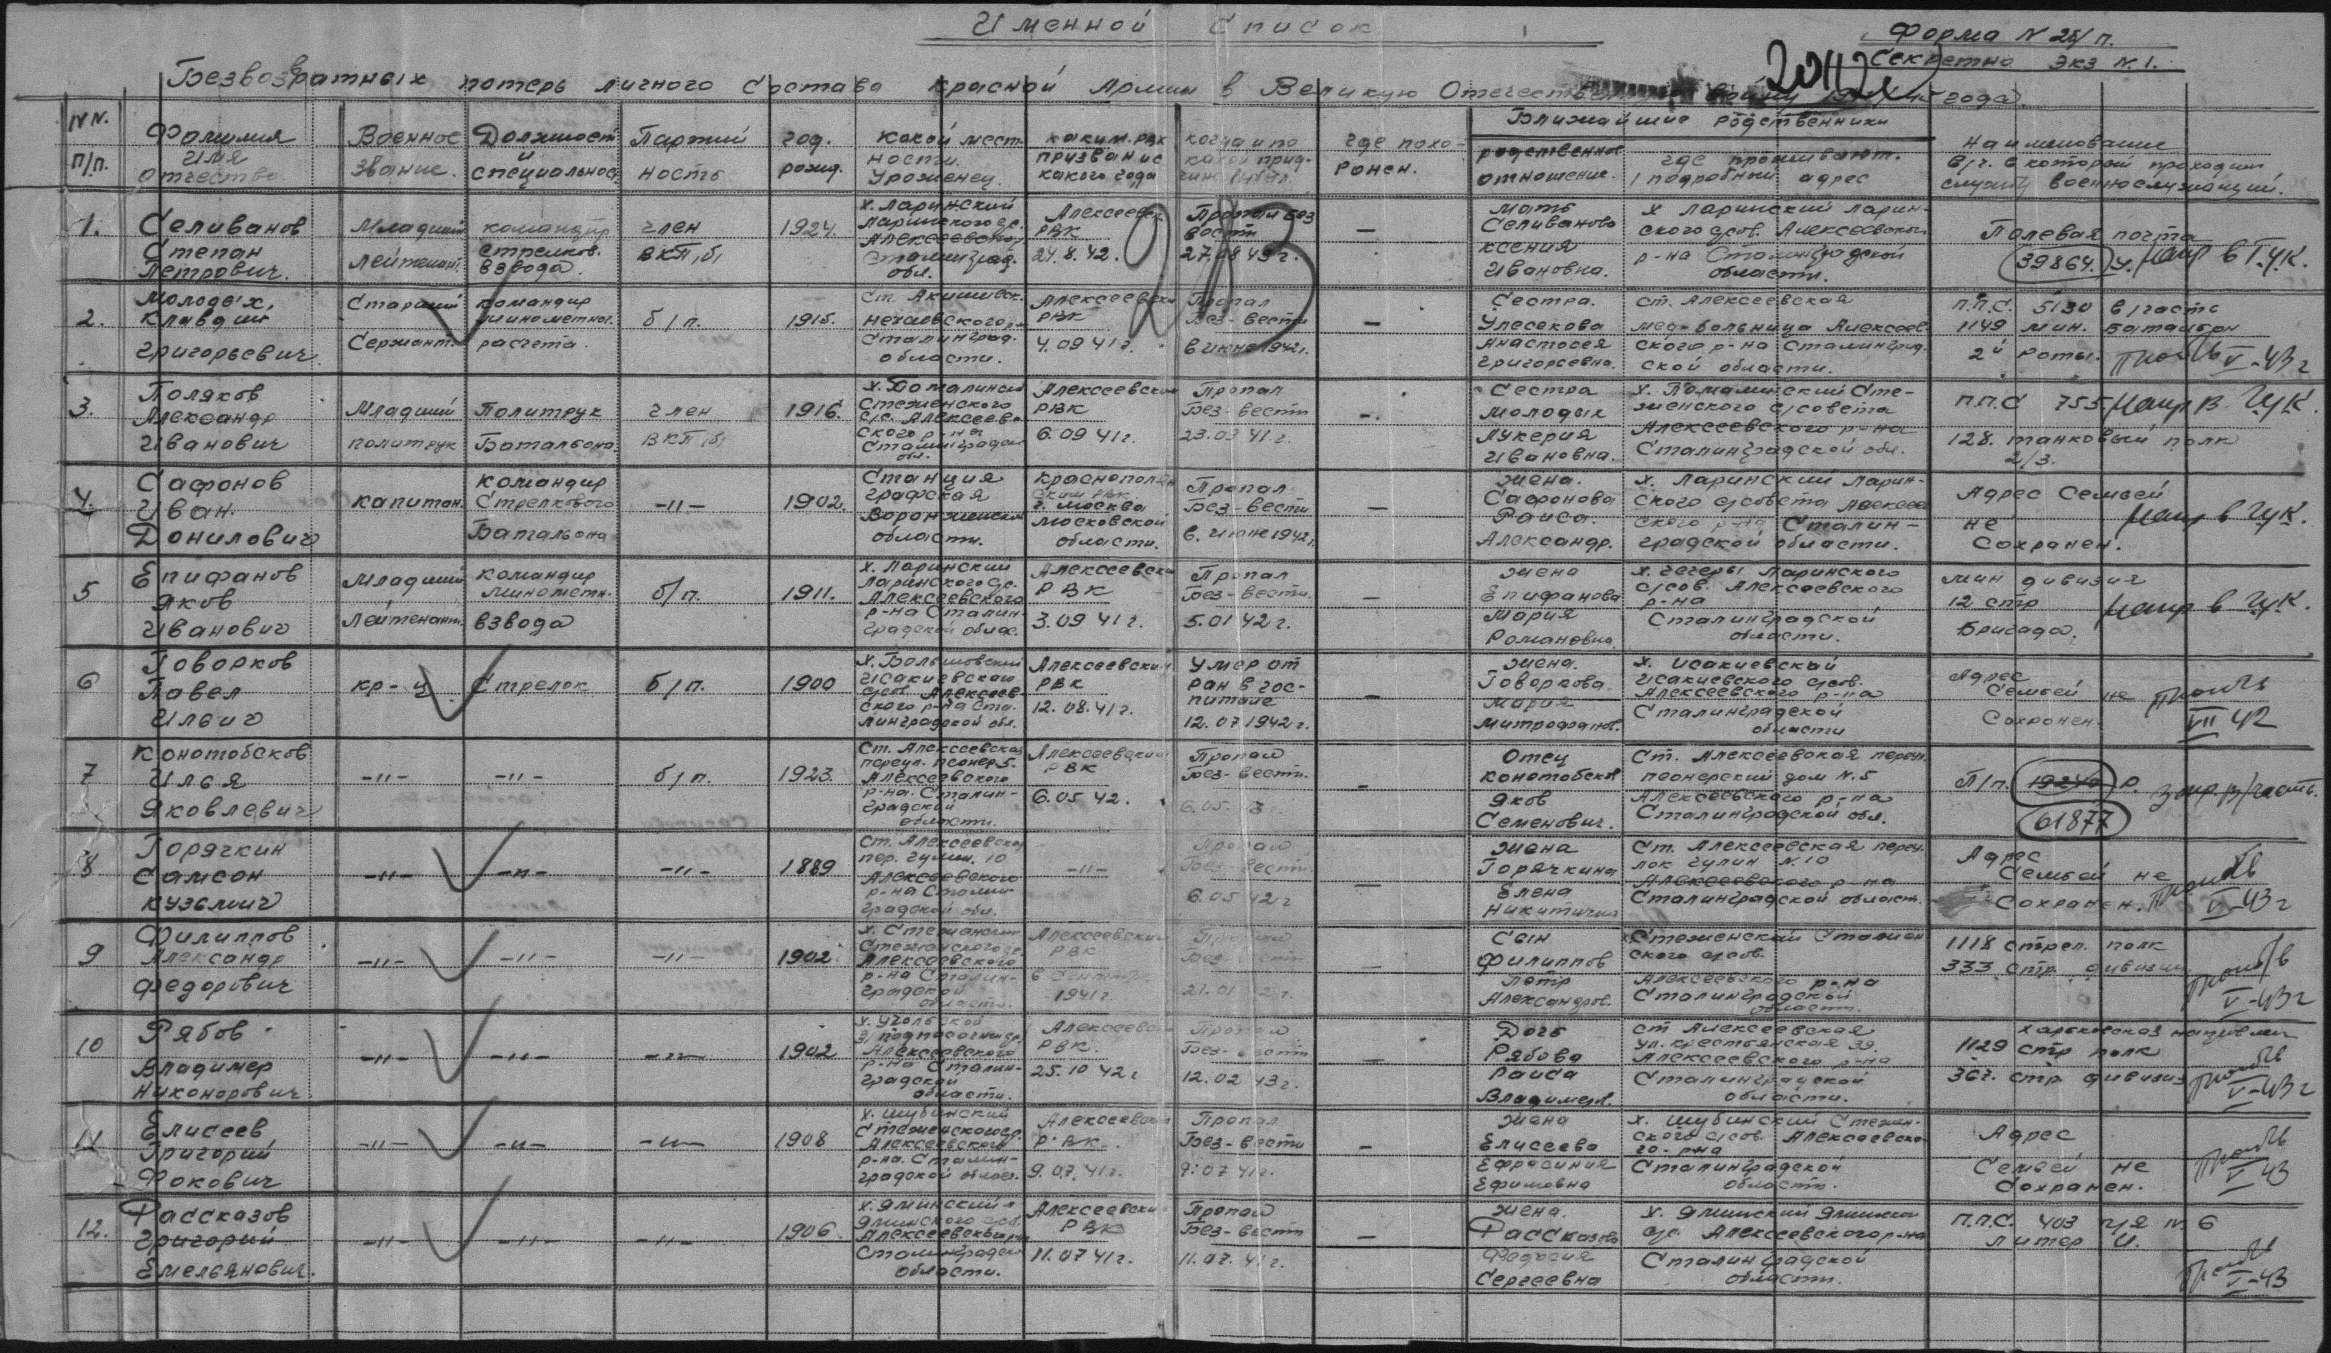 Именной Список
Форма N 2б/п.
Секретно Экз N.1.
Безвозвратных потерь личного состава Красной Армии в Великую Отечественную войну года.
NN. п/п.
Фамилия Имя Отчество
Военное звание.
Должность и специальност
Партий ность
год. рожд.
какой мест ности. Уроженец.
каким. РВК призван и с какого года
когда и по какой прид- чине
где похо- Ронен.
Ближайшие родственники
родственное отношение.
где проживают. подробный адрес
Наименование в/ч. в которой проходил службу военнослужащий.
1.
Селиванов Степан Петрович.
Младший Лейтенант.
командир стрелков. взвода.
член ВКП/б/
1924.
х. Ларинский Ларинского с/с. Алексеевского Сталинград. обл.
Алексеевск РВК 24.8.42.
Пропал без вести 27.08 43 г.
—
мать Селиванова ксения Ивановна.
х Ларинский Ларин- ского с/сов. Алексеевского р-на Сталинградской области.
Полевая почта 39864. У.
напр в Г.У.К.
213
2.
Молодых, Клавдий Григорьевич
Старший Сержант.
командир минометног. расчета.
б/п.
1915.
ст. Акишевск. Нечаевского р-н Сталинград. области.
Алексеевски РВК 4.09 41 г.
Пропал Без-вести в июне 1942 г.
—
Сестра. Улесекова Анастасея Григорьевна.
ст. Алексеевская мед-больница Алексеев ского р-на Сталинград. ской области.
П.П.С. 5130 в/часть 1149 мин. Батальон 2й роты.
V-43 г
3.
Поляков Александр Иванович
Младший политрук
Политрук Батальона.
член ВКП/б/
1916.
Стеженского с/с. Алексеев ского р-на Сталинградск обл.
Алексеевский РВК 6.09 41 г.
Пропал Без-вести 23.03 41 г.
—.
Сестра Молодых Лукерия Ивановна.
х. Помалинский Сте- женского с/совета Алексеевского р-на Сталинградской обл.
П.П.С 755
напр в ГУК.
128. танковый полк 2/3.
4.
Сафонов Иван. Данилович
капитан.
командир Стрелкового Батальона
-"-
1902.
Станция Графская Воронежской области.
Краснополян ский РВК г. Москва Московской области.
Пропал Без-вести в. июне 1942 г.
—
жена. Сафонова Раиса. Александр.
х. Ларинский Ларин- ского с/совета Алексеев ского р-на Сталин- градской области.
Адрес Семьей не Сохранен.
напр в ГУК.
5
Епифанов Яков Иванович
Младший Лейтенант.
командир минометн. взвода
б/п.
1911.
х. Ларинский Ларинского с/с. Алексеевского р-на Сталин- градской облас.
Алексеевски РВК 3.09 41 г.
Пропал Без-вести. 5.01 42 г.
—
жена Епифанова Мария Романовна
х. Чечеры Ларинского с/сов. Алексеевского р-на Сталинградской области.
мин дивизия 12 стр Бригада.
напр в ГУК.
6
Говорков Павел Ильич
кр-ц
Стрелок
б/п.
1900
х. Большовский Исакиевский с/сов. Алексеев- ского р-на Ста- линградской обл.
Алексеевский РВК 12.08.41 г.
Умер от ран в гос- питале 12.07 1942 г.
—
жена. Говоркова Мария Митрофанов.
х. Исакиевский Исакиевского с/сов. Алексеевского р-на Сталинградской области
Адрес Семьей не Сохранен.
VII 42
7
Конотобсков Илья Яковлевич
-"-
-"-
б/п.
1923.
Ст. Алексеевская переул. пеонер 5. Алексеевского р-на. Сталин- градской области.
Алексеевский РВК 6.05 42.
Пропал Без-вести. 6.05.
—
Отец Конотобсков Яков Семенович.
Ст. Алексеевская переул. пеонерский дом N.5 Алексеевского р-на Сталинградской обл.
П/п. 19240 Р. 61877
8
Горячкин Самсон Кузьмич
-"-
-"-
-"-
1889
ст. Алексеевская пер. Гулин. 10 Алексеевского р-на Сталин- градской обл.
-"-
Пропал Без-вести 6.05 42 г
—
жена Горячкина Елена Никитична
ст. Алексеевская переу лок Гулин N.10 Алексеевского р-на Сталинградской област.
Адрес Семьей не Сохранен.
V-43 г
9
Филиппов Александр Федорович
-"-
-"-
-"-
1902
х. Стеженский Стеженского с/с. Алексеевского р-на Сталин- градской области.
Алексеевский РВК 6 Сентяб 1941 г.
Пропал Без-вести 21.01
—
Сын Филиппов Петр Александров.
Стеженский Стежен ского с/сов. Алексеевского р-на Сталинградской области.
1118 стрел. полк 333 стр. дивизии
V-43 г
10
Рябов Владимер Никонорович
-"-
-"-
-"-
1902
Алексеевского р-на Сталин- градской области.
Алексеевск РВК. 25.10 42 г
Пропал Без-вести 12.02 43 г.
—
Дочь Рябова Раиса Владимеров.
ст Алексеевская ул. крестьянская 39. Алексеевского р-на Сталинградской области.
Харьковская направл 1129 стр полк 367. стр дивизия
V-43 г
11
Елисеев Григорий Фокович
-"-
-"-
-"-
1908
х. Шубинский Стеженского с/с. Алексеевского р-на. Сталин- градской област.
Алексеевский Р.ВК. 9.07.41 г.
Пропал Без-вести 9.07 41 г.
—
жена Елисеева Ефросиния Ефимовна
х. Шубинский Стежен- ского с/сов. Алексеевско- го-рна Сталинградской области.
Адрес Семьей не Сохранен.
V 43
12.
Рассказов Григорий Емельянович.
-"-
-"-
-"-
1906.
х. Яминский Яминского с/сов. Алексеевского р-на Сталинградск области.
Алексеевски РВК 11.07 41 г.
Пропал Без-вести 11.07. 41 г.
—
жена. Рассказова Федосия Сергеевна
х. Яминский Яминског с/с. Алексеевского р-на Сталинградской области.
П.П.С. 403 п/я N. 6 литер И.
V-43